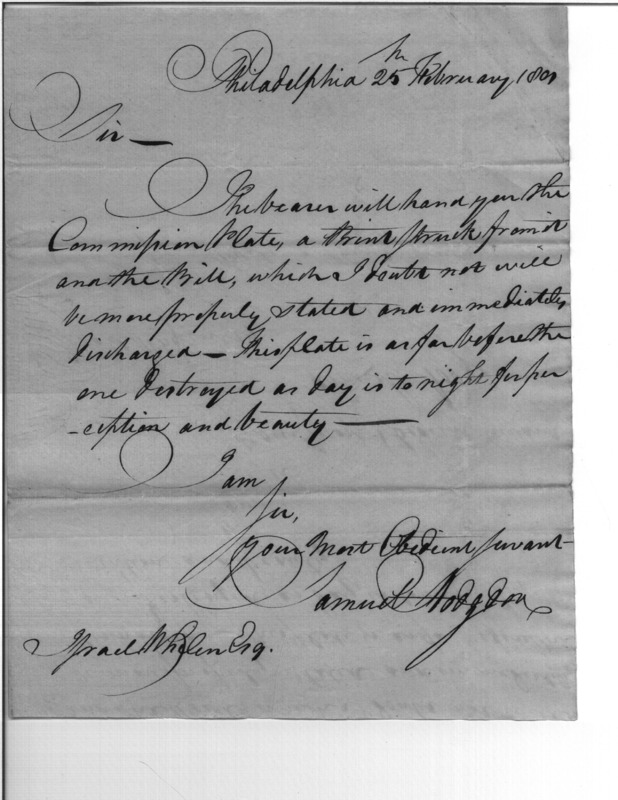 Philadelphia 25th February 1801
Sir —
The bearer will hand you the
Commission Plate, a Print struck from it
and the Bill, which I doubt not will
be more properly stated and immediately
discharged — This plate is as far before the
one destroyed as day is to night for per
-ception and beauty —
I am
Sir,
your Most Obedient servant
Samuel Hodgdon
Israel Whelen Esq.